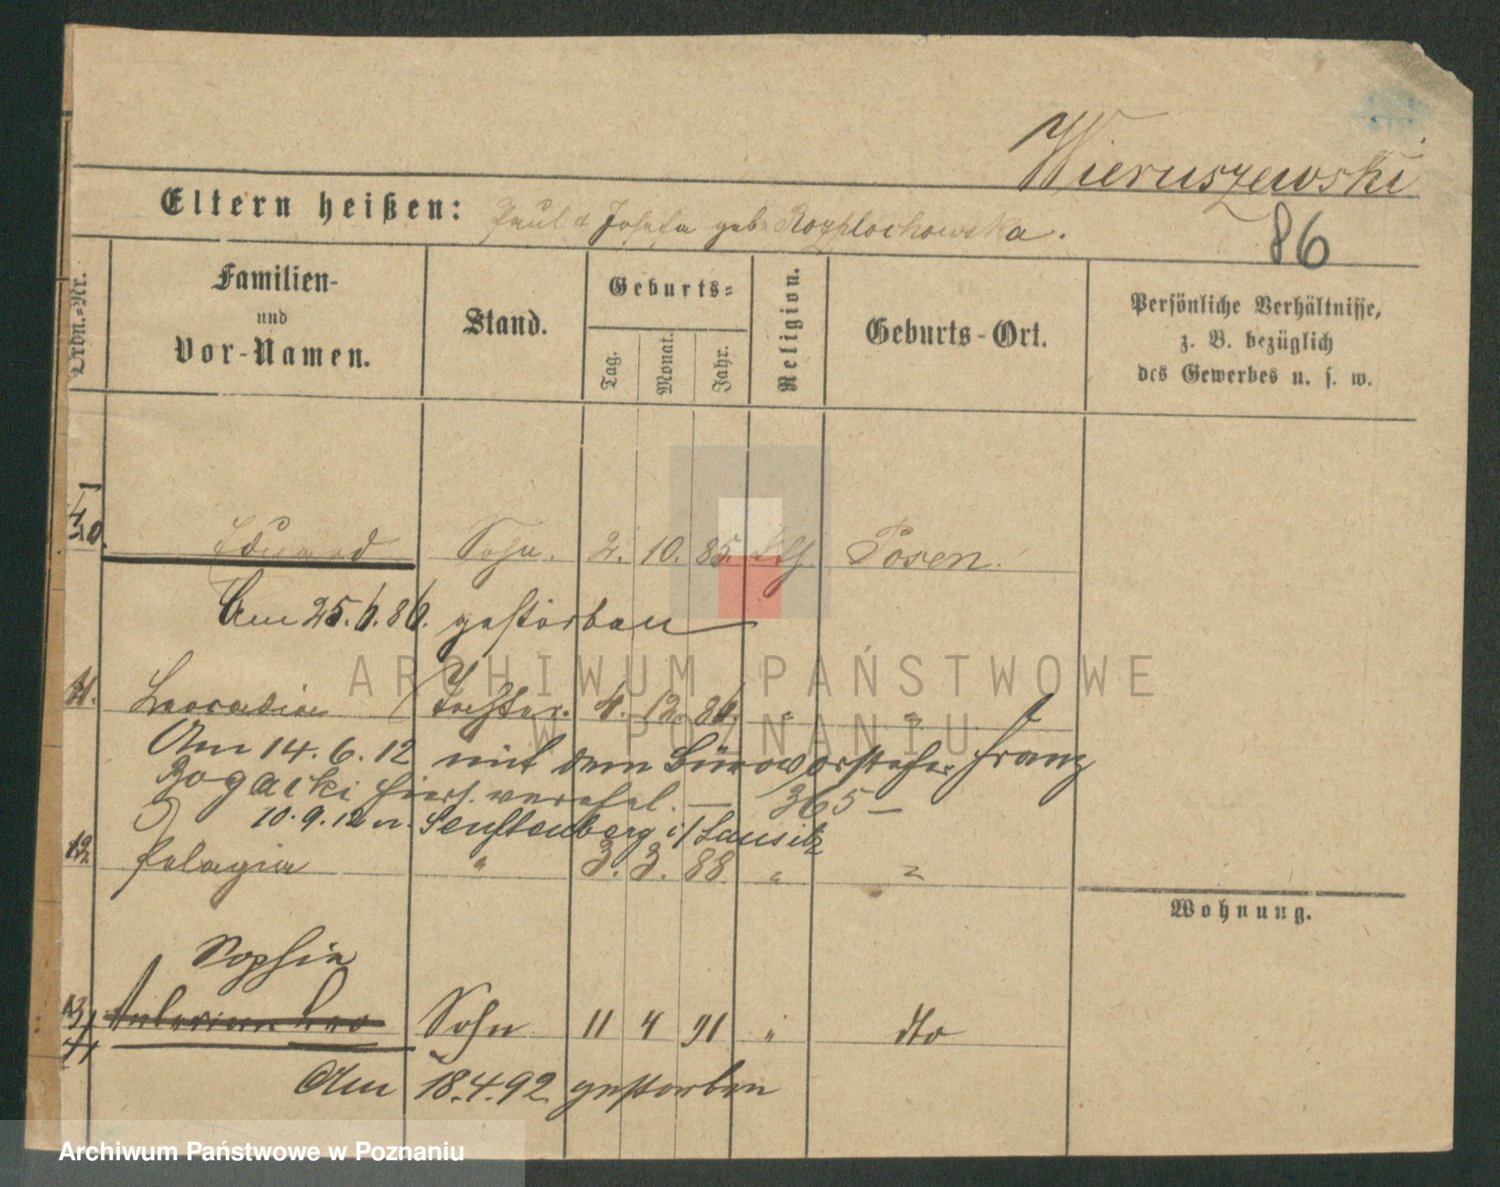 Wieruszewski
Eltern heißen: Paul & Josefa geb. Rozplochowska.
86
Ordn.-Nr.
Familien- und Vor-Namen.
Stand.
Geburts-
Tag. Monat. Jahr.
Religion.
Geburts-Ort.
Persönliche Verhältnisse,
z. B. bezüglich
des Gewerbes u. s. w.
10. Eduard Sohn. 2. 10. 85. kth. Posen.
Am 25.6.86. gestorben
11. Leocadia Tochter. 4. 12. 86. " "
Am 14.6.12 mit dem Bürovorsteher Franz
Rogacki hiers. verehel. — 365 —
10.9.12 n. Senftenberg i/Lausitz
12. Pelagia " 3. 3. 88 " "
Wohnung.
Sophia
13 Leo Sohn 11 4 91 " dto
Am 18.4.92 gestorben
ARCHIWUM PAŃSTWOWE
W POZNANIU
Archiwum Państwowe w Poznaniu